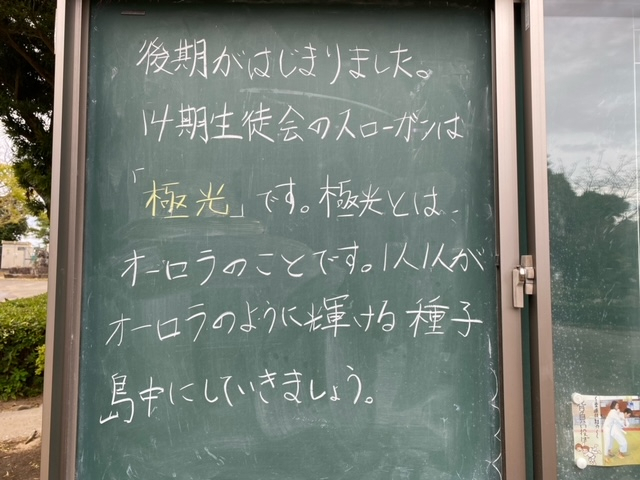 後期がはじまりました。
14期生徒会のスローガンは
「極光」です。極光とは、
オーロラのことです。1人1人が
オーロラのように輝ける種子
島中にしていきましょう。